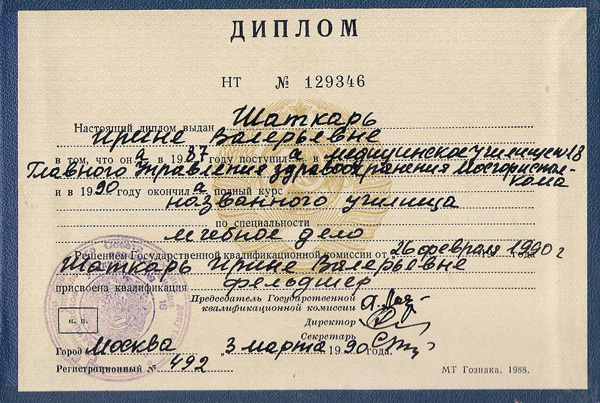 ДИПЛОМ
НТ № 129346
Настоящий диплом выдан Шаткарь
Ирине Валерьевне
в том, что она в 1987 году поступила в медицинское училище №18
Главного Управления здравоохранения Мосгориспол-
кома
и в 1990 году окончила полный курс
названного училища
по специальности
лечебное дело
Решением Государственной квалификационной комиссии от 26 февраля 1990 г
года
Шаткарь Ирине Валерьевне
присвоена квалификация фельдшер
Председатель Государственной
квалификационной комиссии
Директор
Секретарь
м. п.
Город Москва 3 марта 1990 года.
Регистрационный № 492
МТ Гознака. 1988.